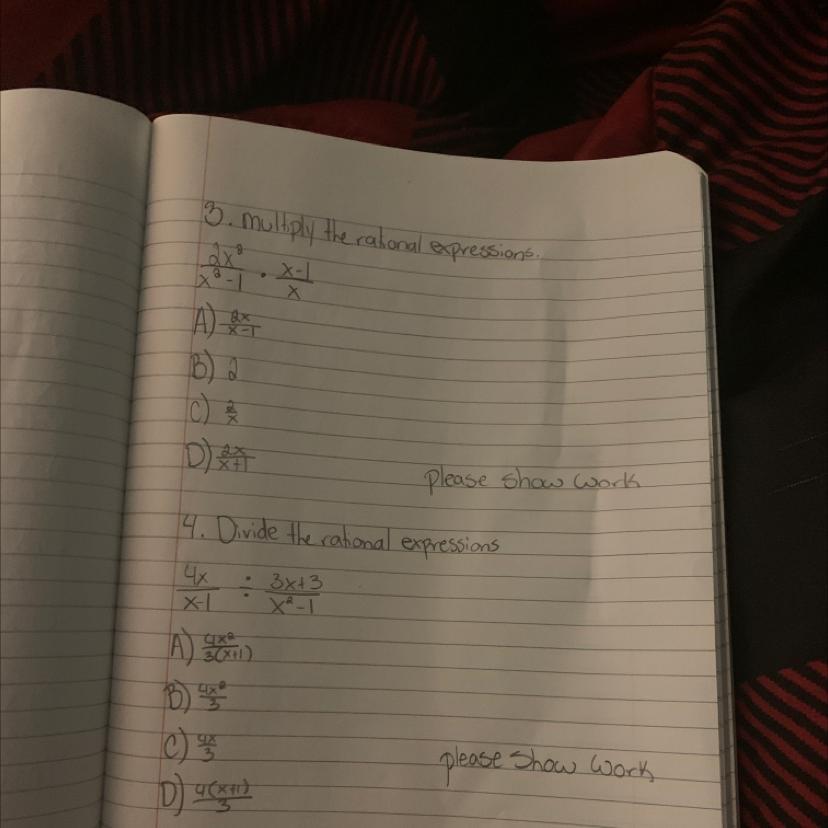 3. multiply the rational expressions.
2x²/x²-1 · x-1/x
A) 2x/x-1
B) 2
C) 2/x
D) 2x/x+1
please show work
4. Divide the rational expressions
4x/x-1 ÷ 3x+3/x²-1
A) 4x²/3(x+1)
B) 4x²/3
C) 4x/3
please show work
D) 4(x+1)/3